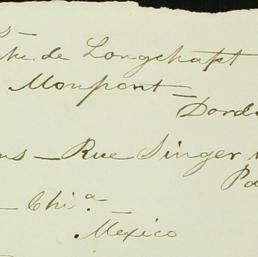 de Longchapt
Monpont - Dord
- Rue Singer
Pa
- Chi^a.
- Mexico